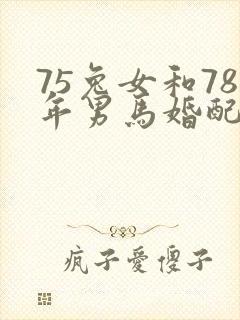 75兔女和78
年男馬婚配
瘋子愛傻子